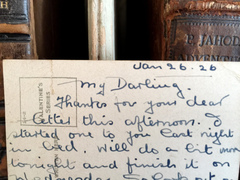 P. JAHODA
Jan 26. 26
My Darling.
VALENTINE'S
SERIES
Thanks for your dear
letter this afternoon. I
started one to you last night
in bed. Will do a bit more
tonight and finish it on